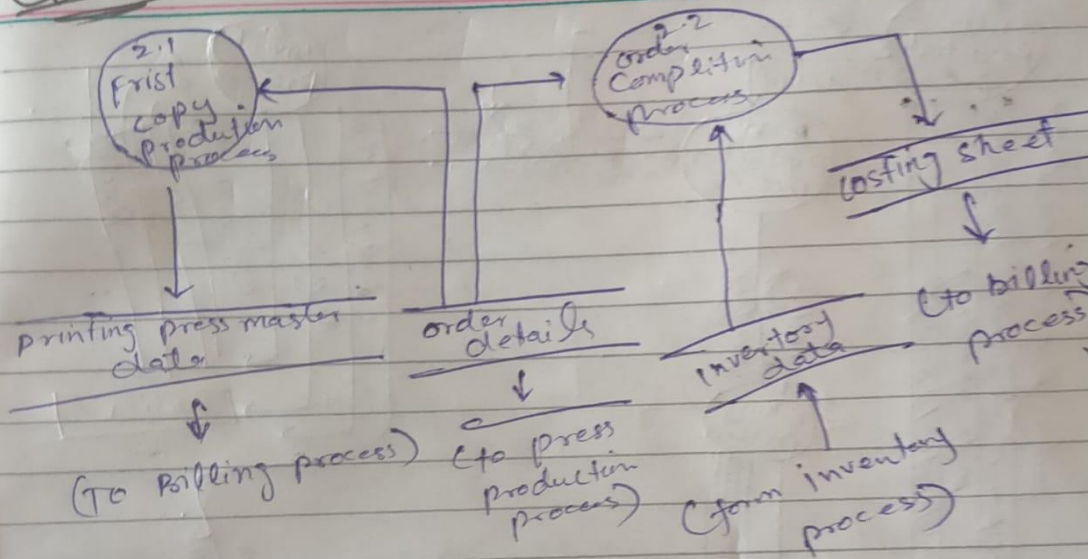 2.1
Frist
copy
prodution
process
2.2
order
Complition
process
costing sheet
(to Billing
process)
printing press master
data
order
details
inventory
data
(To Billing process)
(to press
production
process)
(form inventory
process)